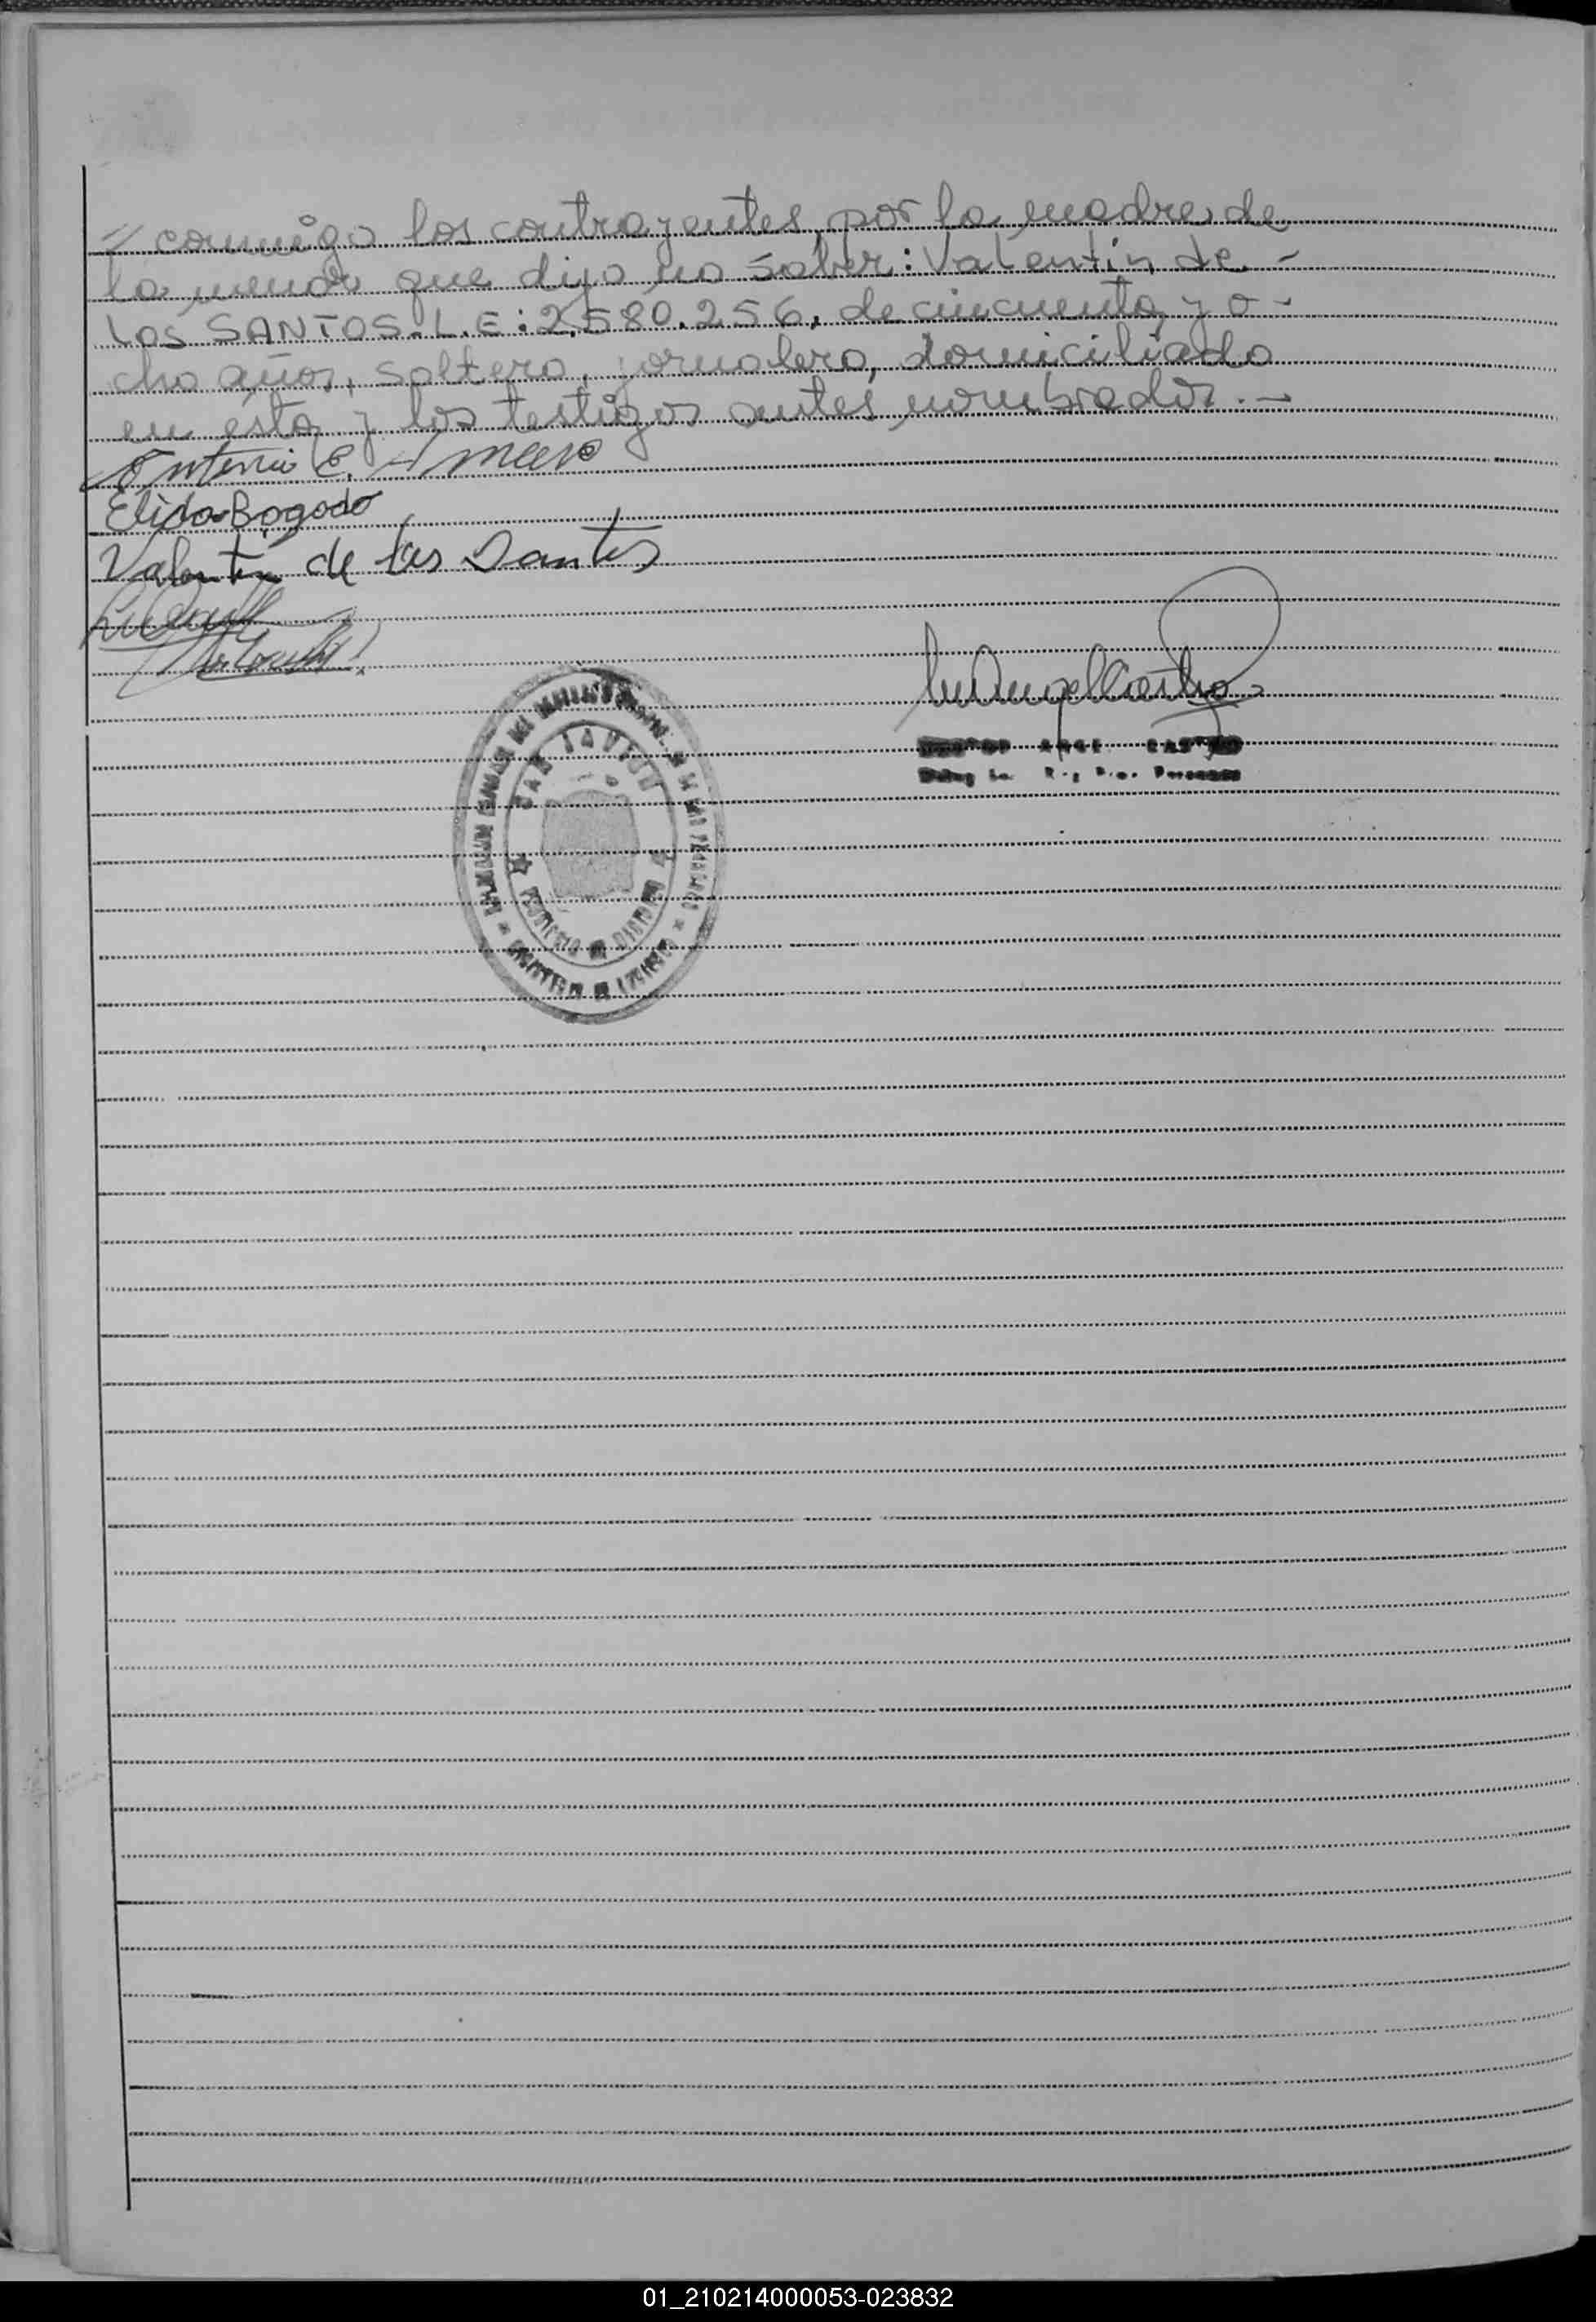 // conmigo los contrayentes, por la madre de
la menor que dijo no saber: Valentín de -
los SANTOS. L.E: 2.580.256, de cincuenta y o -
cho años, soltero, jornalero, domiciliado
en ésta y los testigos antes nombrados. -
Antonio E.
Elida Bogado
Valentin de los Santos
Angel Castro
SAN JAVIER
01_210214000053-023832